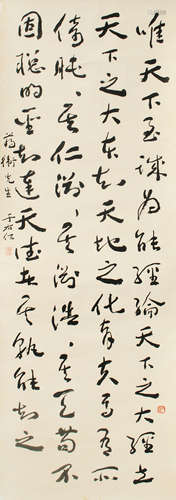 唯天下至誠為能經綸天下之大經立
天下之大本知天地之化育夫焉有所
倚肫々其仁淵々其淵浩々其天苟不
固聰明聖知達天德者其孰能知之
衡先生
于右任